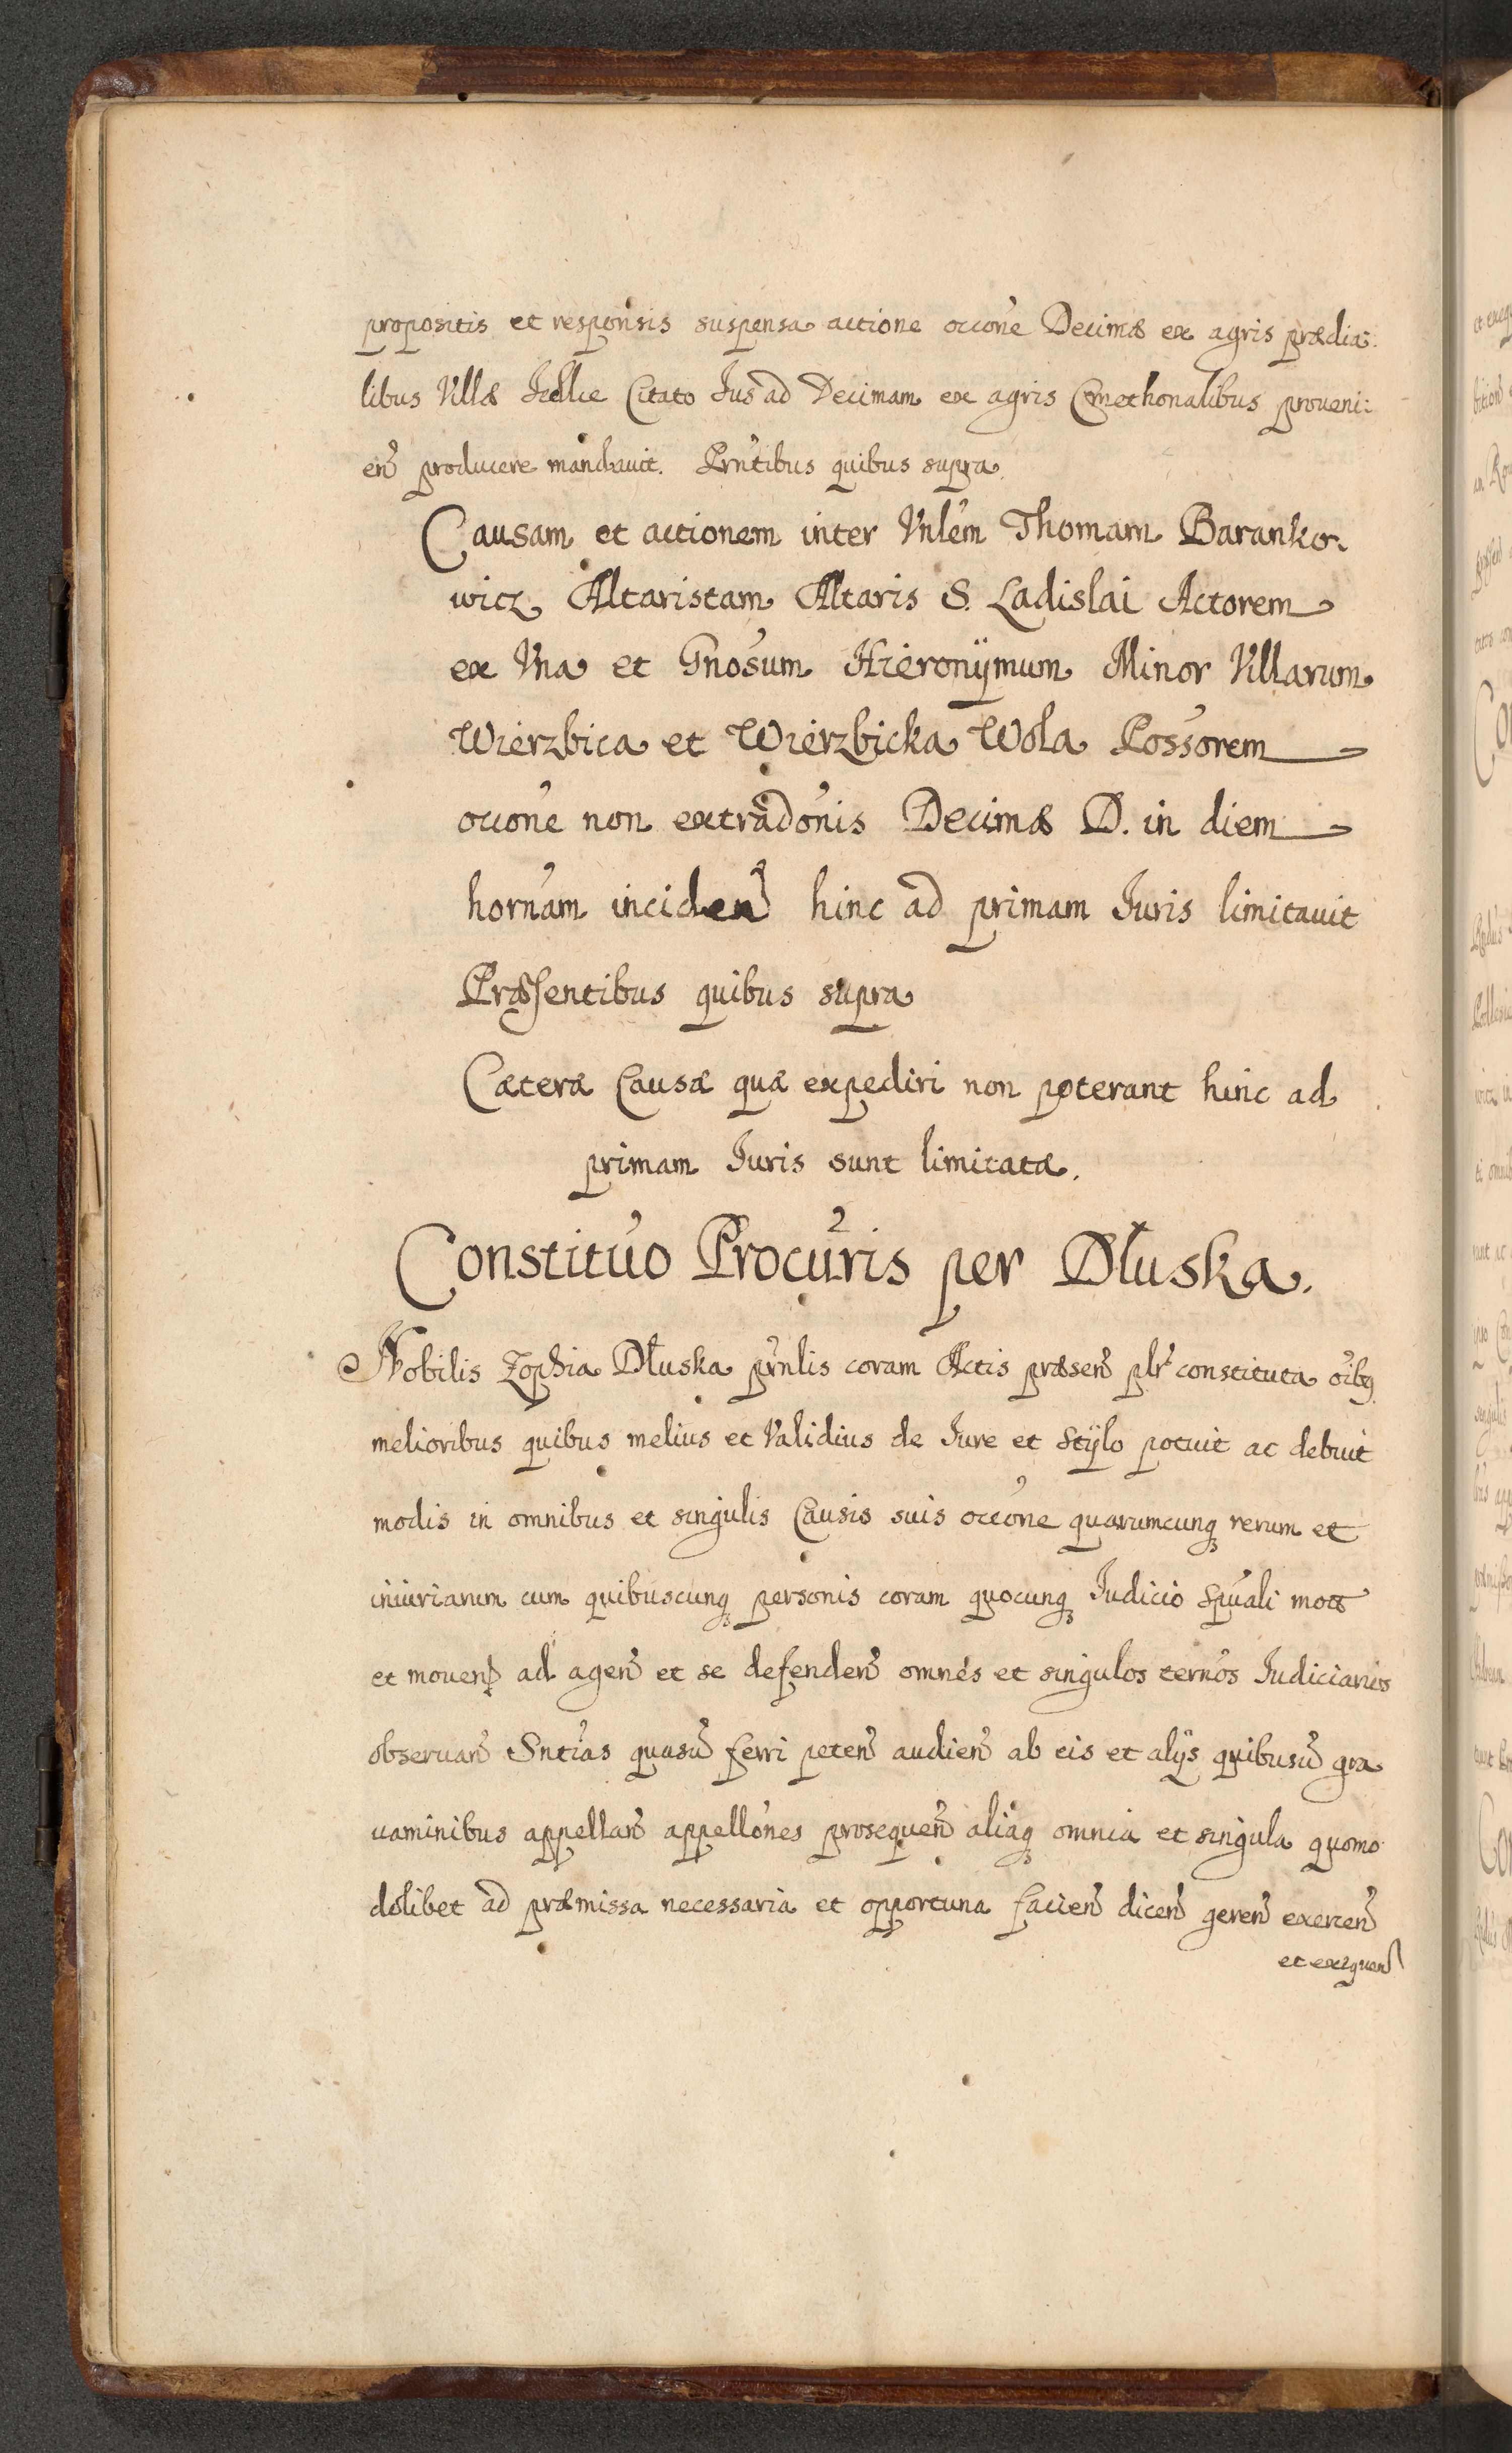 propositis et responsis suspensa actione occõne Decimæ ex agris prædia:
libus Villæ Jedlie Citato Jus ad Decimam ex agris Cmethonalibus proueni:
eñ producere mandauit. Prñtibus quibus supra.
Causam et actionem inter Vnlem Thomam Baranko-
wicz Altaristam Altaris S. Ladislai Actorem
ex Vna et Gnosum Hieronÿmum Minor Villarum
Wierzbica et Wierzbicka Wola Possorem
occõne non extradonis Decimæ D. in diem
hornam inciden̄ hinc ad primam Juris limitauit
Præsentibus quibus supra
Cæteræ Causæ quæ expediri non poterant hinc ad
primam Juris sunt limitatæ.
Constituo Procuris per Dłuska.
Nobilis Zophia Dłuska prnlis coram Actis præseñ plr constituta oibq
melioribus quibus melius et Validius de Jure et Stÿlo potuit ac debuit
modis in omnibus et singulis Causis suis occõne quarumcunq rerum et
iniuriarum cum quibuscunq personis coram quocunq Judicio Spuali mot
et mouen ad ageñ et se defendeñ omnes et singulos ternos Judiciarios
obseruañ Sntias quasu ferri peteñ audieñ ab eis et alÿs quibusu gra
uaminibus appellañ appellones prosequeñ aliaq omnia et singula quomo
dolibet ad præmissa necessaria et opportuna facieñ diceñ gereñ exerceñ
et exequen